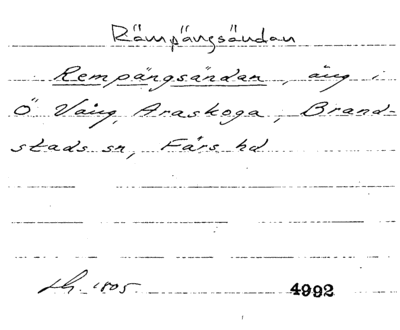 Rämpängsändan
Rempängsändan, äng i
Ö Vång, Araskoga, Brand-
stads sn, Färs hd
1805
4992